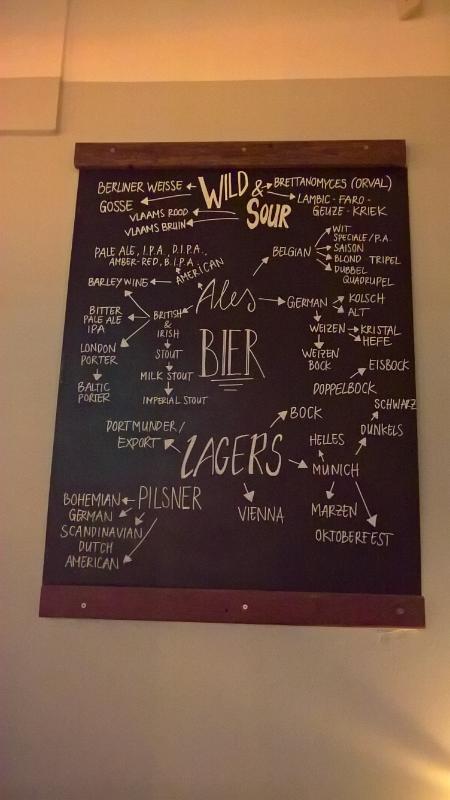 WILD & SOUR
BERLINER WEISSE
GOSSE
VLAAMS ROOD
VLAAMS BRUIN
BRETTANOMYCES (ORVAL)
LAMBIC - FARO -
GEUZE - KRIEK
Ales
AMERICAN
PALE ALE, I.P.A., D.I.P.A.,
AMBER-RED, B.I.P.A.
BARLEYWINE
BELGIAN
WIT
SPECIALE/P.A.
SAISON
BLOND TRIPEL
DUBBEL
QUADRUPEL
BRITISH
&
IRISH
BITTER
PALE ALE
IPA
LONDON
PORTER
BALTIC
PORTER
STOUT
MILK STOUT
IMPERIAL STOUT
GERMAN
KOLSCH
ALT
WEIZEN
KRISTAL
HEFE
WEIZEN
BOCK
BIER
LAGERS
DORTMUNDER/
EXPORT
BOCK
DOPPELBOCK
EISBOCK
MUNICH
HELLES
DUNKELS
SCHWARZ
MARZEN
OKTOBERFEST
VIENNA
PILSNER
BOHEMIAN
GERMAN
SCANDINAVIAN
DUTCH
AMERICAN